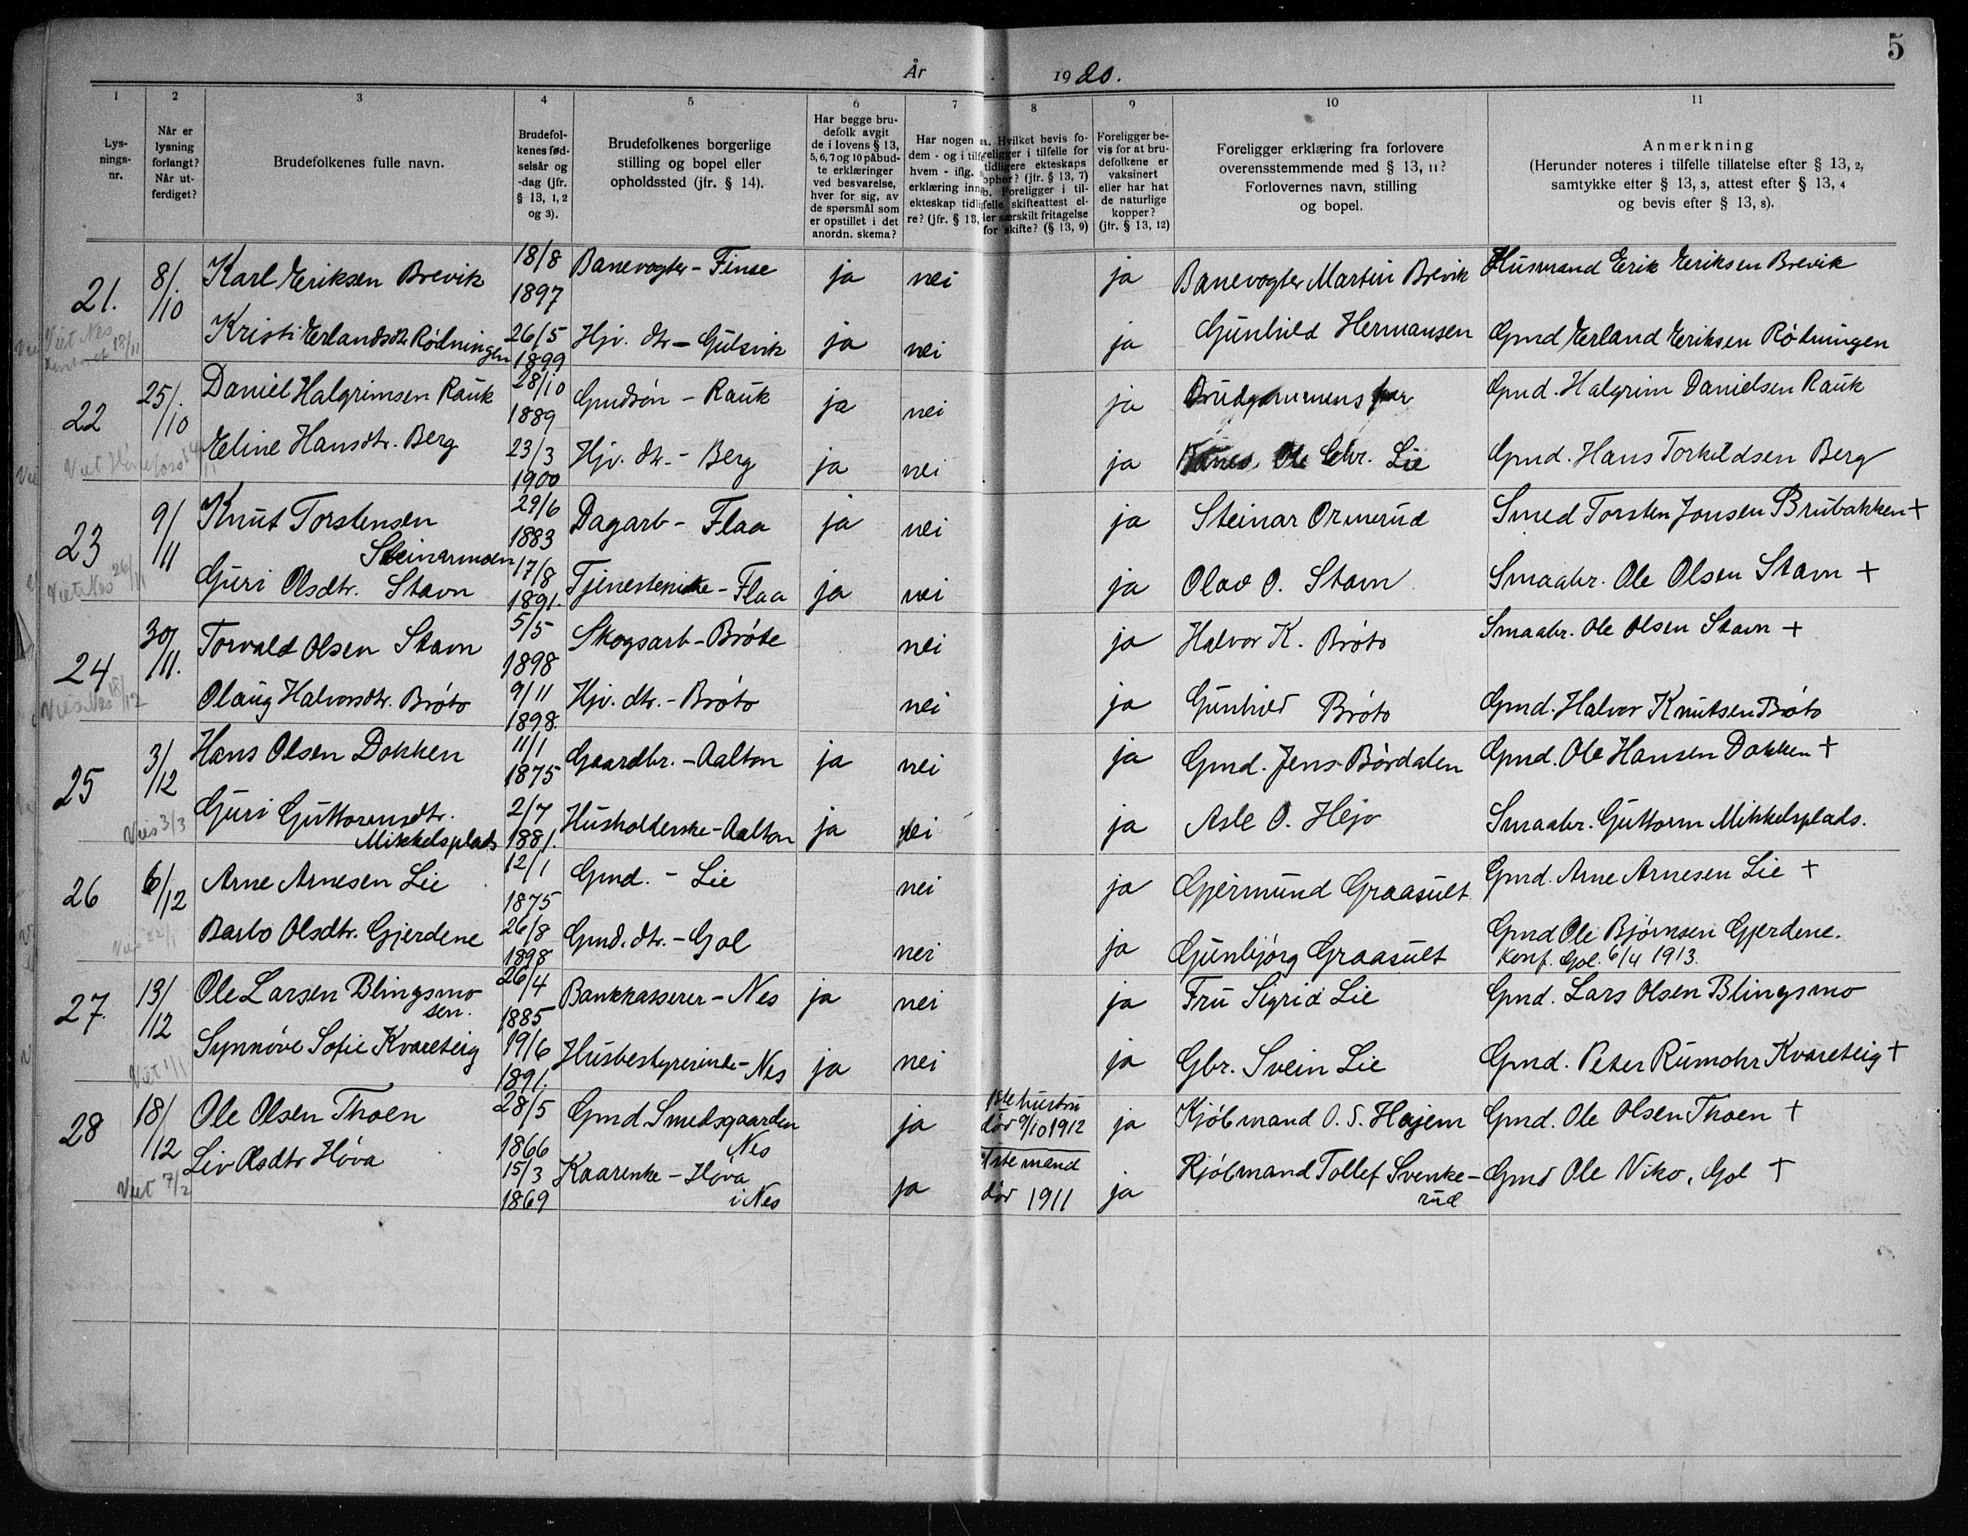 5
År 1920.
1 2 3 4 5 6 7 8 9 10 11
Lysnings-nr.
Når er lysning forlangt? Når utferdiget?
Brudefolkenes fulle navn.
Brudefolkenes fødselsår og -dag (jfr. § 13, 1, 2 og 3).
Brudefolkenes borgerlige stilling og bopel eller opholdssted (jfr. § 14).
Har begge brudefolk avgit de i lovens § 13, 5, 6, 7 og 10 påbudte erklæringer ved besvarelse, hver for sig, av de spørsmål som er opstillet i det anordn. skema?
Har nogen
dem - og i tilf
hvem - iflg.
erklæring inn
ekteskap tidli
re? (jfr. § 13,
a. Hvilket bevis foreligger i tilfelle for tidligere ekteskaps ophør? (jfr. § 13, 7)
b. Foreligger i tilfelle skifteattest eller særskilt fritagelse for skifte? (§ 13, 9)
Foreligger bevis for at brudefolkene er vaksinert eller har hat de naturlige kopper? (jfr. § 13, 12)
Foreligger erklæring fra forlovere overensstemmende med § 13, 11? Forlovernes navn, stilling og bopel.
Anmerkning
(Herunder noteres i tilfelle tillatelse efter § 13, 2, samtykke efter § 13, 3, attest efter § 13, 4 og bevis efter § 13, 8).
21. 8/10 Karl Eriksen Brevik 18/8 1897 Banevogter - Finse ja nei ja Banevogter Martin Brevik Husmand Erik Eriksen Brevik
Viet Nes 18/11 Kristi Erlandsdtr Rødningen 26/5 1899 Hjv. dtr - Gulsvik ja nei ja Gunhild Hermansen Gmd Erland Eriksen Rødningen
22 25/10 Daniel Halgrimsen Rauk 28/10 1889 Gmdsøn - Rauk ja nei ja Brudgommens far Gmd. Halgrim Danielsen Rauk
Viet Eline Hansdtr. Berg 23/3 1900 Hjv. dtr. - Berg ja nei ja Ole Chr. Lie Gmd. Hans Torkildsen Berg
23 9/11 Knut Torstensen Steinarmoen 29/6 1883 Dagarb - Flaa ja nei ja Steinar Ormerud Smed Torsten Jonsen Brubakken +
Viet Nes 26/11 Guri Olsdtr. Stavn 17/8 1891. Tjenestepike - Flaa ja nei ja Olav O. Stavn Smaabr. Ole Olsen Stavn +
24 30/11. Torvald Olsen Stavn 5/5 1898 Skogsarb - Brøte nei ja Halvor K. Brøto Smaabr. Ole Olsen Stavn +
Vies Nes 18/12 Olaug Halvorsdtr. Brøto 9/11 1898. Hjv. dtr. - Brøto nei ja Gunhild Brøto Gmd. Halvor Knutsen Brøto
25 3/12 Hans Olsen Dokken 11/1 1875 Gaardbr. - Aalton ja nei ja Gmd. Jens Børdalen Gmd. Ole Hansen Dokken +
Vies 3/3 Guri Guttormsdtr. Mikkelsplads 2/7 1881. Husholderske - Aalton ja nei ja Asle O. Hejo Smaabr. Guttorm Mikkelsplads.
26 6/12 Arne Arnesen Lie 12/1 1875 Gmd. - Lie nei ja Gjermund Graasult Gmd. Arne Arnesen Lie +
Vies 22/1 Barbo Olsdtr. Gjerdene 26/8 1898 Gmd. dtr. - Gol nei ja Gunbjørg Graasult Gmd Ole Bjørnsen Gjerdene.
Konf. Gol. 6/4 1913.
27. 13/12 Ole Larsen Blingsmo sen. 26/4 1885 Bankkasserer - Nes ja nei ja Fru Sigrid Lie Gmd. Lars Olsen Blingsmo
Viet 1/1 Synnøve Sofie Kvareteig 19/6 1891. Husbestyrerinde - Nes ja nei ja Gbr. Svein Lie Gmd. Peter Rumohr Kvareteig +
28 18/12 Ole Olsen Thoen 28/5 1866 Gmd Smedsgaarden Nes ja 1ste hustru død 9/10 1912 ja Kjøbmand O. S. Hagem Gmd. Ole Olsen Thoen +
Viet 7/2 Liv Olsdtr Hova 15/3 1869 Kaarenke - Hova i Nes ja 1ste mand død 1911 ja Kjøbmand Tollef Svenkerud Gmd Ole Niko, Gol +